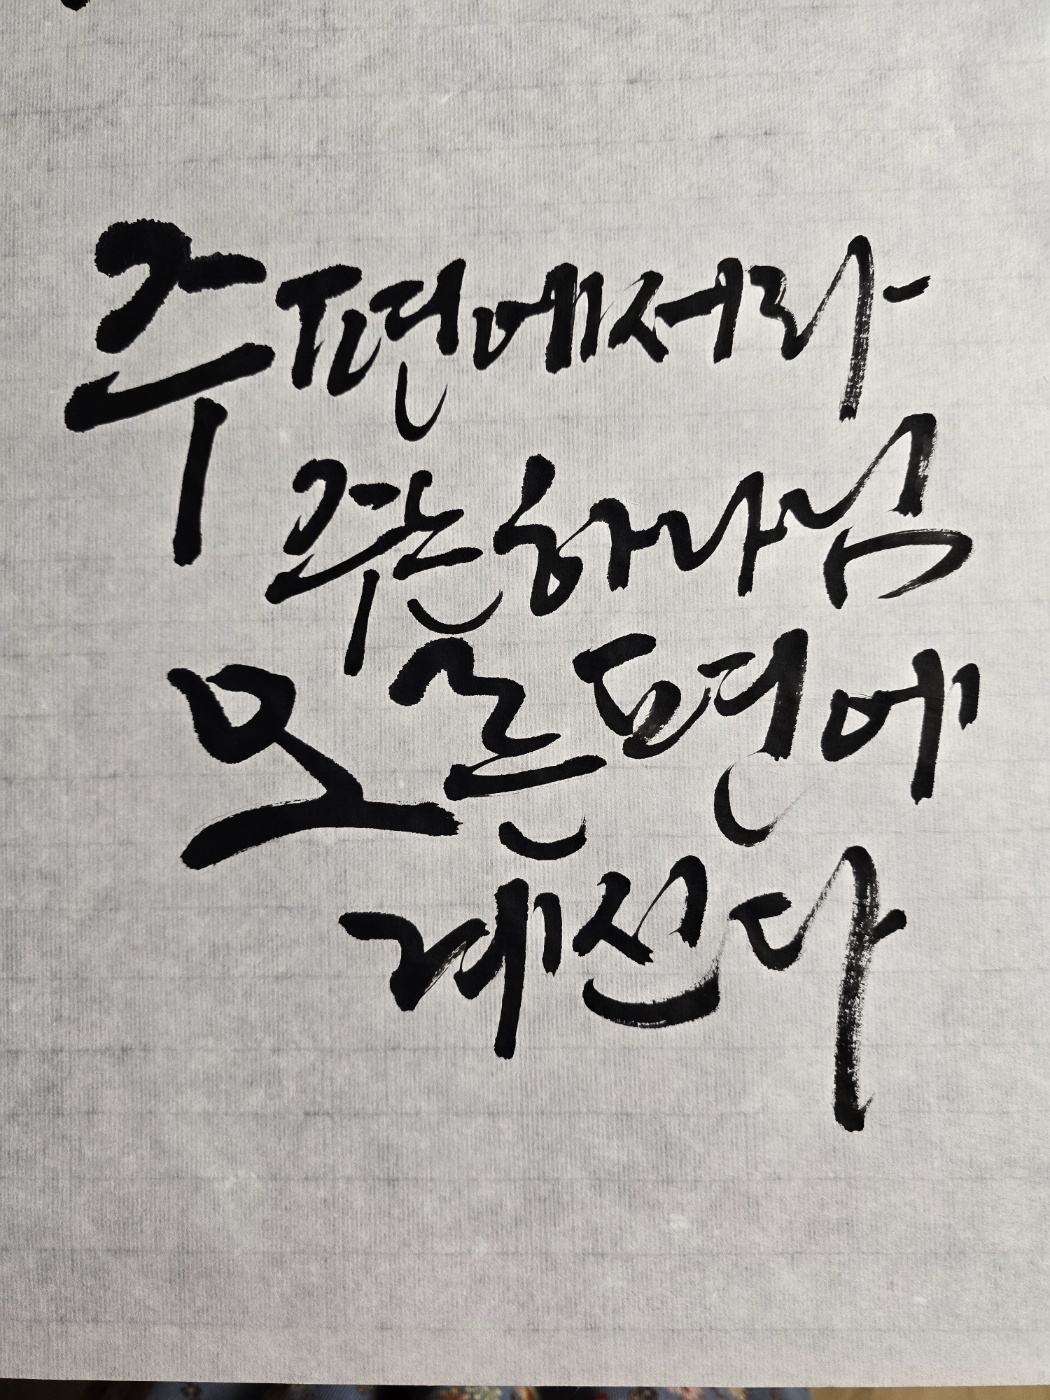 주편에서라
주는하나님
오른편에
계신다